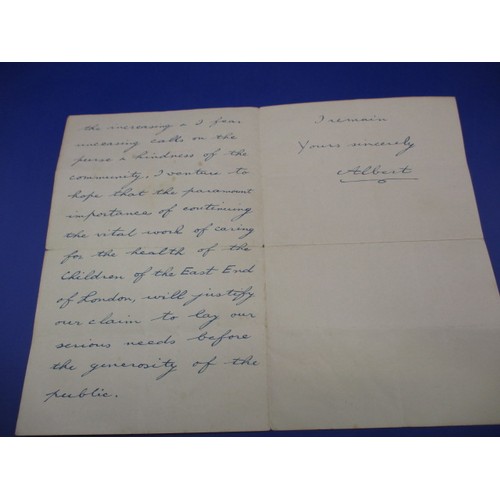 the increasing & I fear
unceasing calls on the
purse & kindness of the
community, I venture to
hope that the paramount
importance of continuing
the vital work of caring
for the health of the
Children of the East End
of London, will justify
our claim to lay our
serious needs before
the generosity of the
public.
I remain
Yours sincerely
Albert